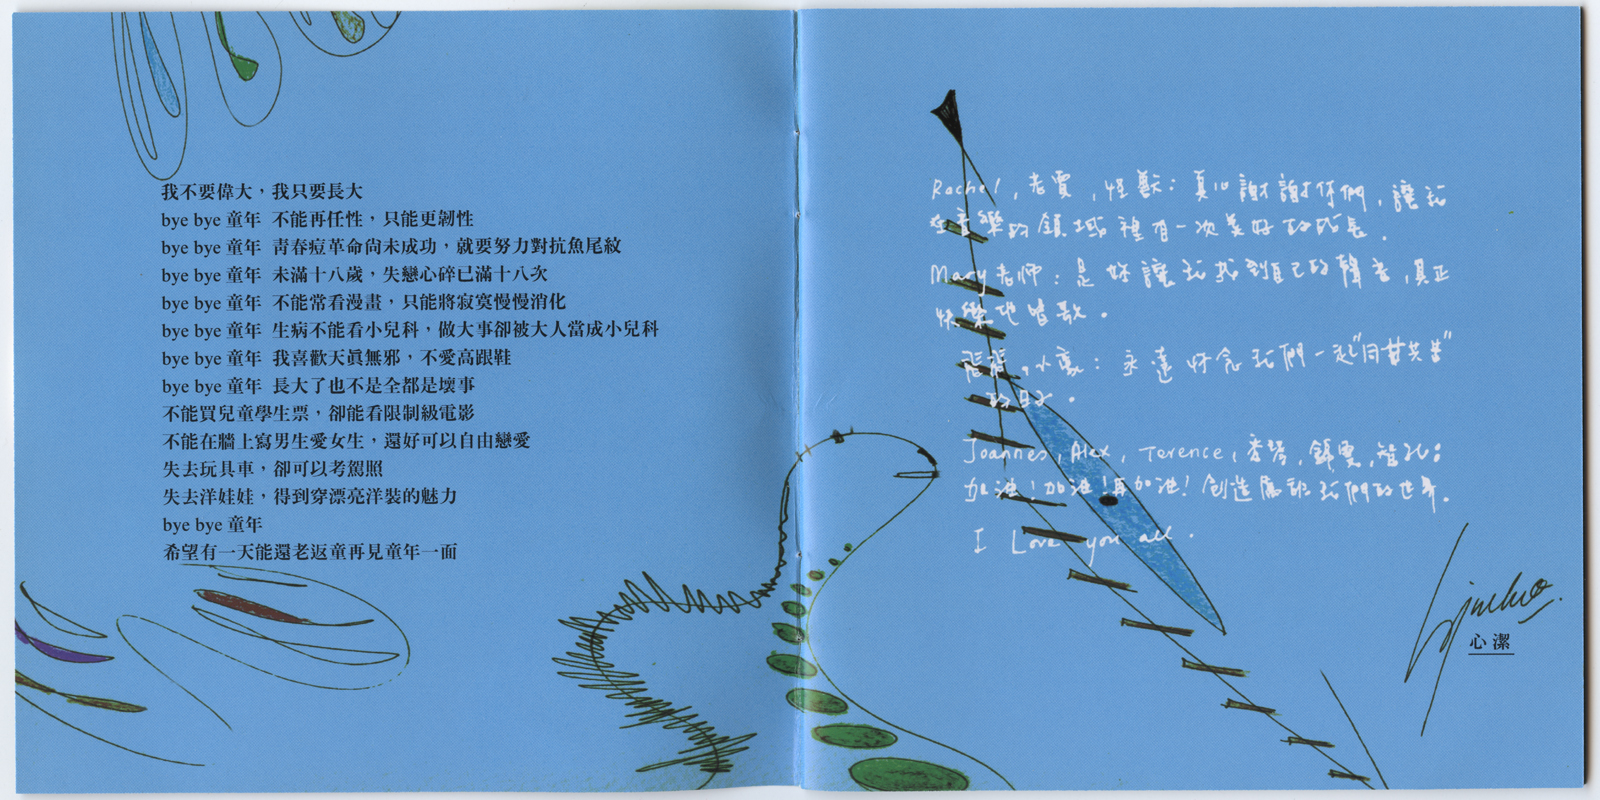 我不要偉大，我只要長大
bye bye 童年 不能再任性，只能更韌性
bye bye 童年 青春痘革命尚未成功，就要努力對抗魚尾紋
bye bye 童年 未滿十八歲，失戀心碎已滿十八次
bye bye 童年 不能常看漫畫，只能將寂寞慢慢消化
bye bye 童年 生病不能看小兒科，做大事卻被大人當成小兒科
bye bye 童年 我喜歡天眞無邪，不愛高跟鞋
bye bye 童年 長大了也不是全都是壞事
不能買兒童學生票，卻能看限制級電影
不能在牆上寫男生愛女生，還好可以自由戀愛
失去玩具車，卻可以考駕照
失去洋娃娃，得到穿漂亮洋裝的魅力
bye bye 童年
希望有一天能還老返童再見童年一面
Rachel，老賈，怪獸：真心謝謝你們，讓我
在音樂的領域裡有一次美好的成長．
Mary老師：是妳讓我找到自己的聲音，真正
快樂地唱歌．
小豪：永遠怀念我們一起"同甘共苦"
的日子．
Joannes，Alex，Terence，
加油！加油！再加油！創造屬於我們的世界．
I Love you all．
心潔